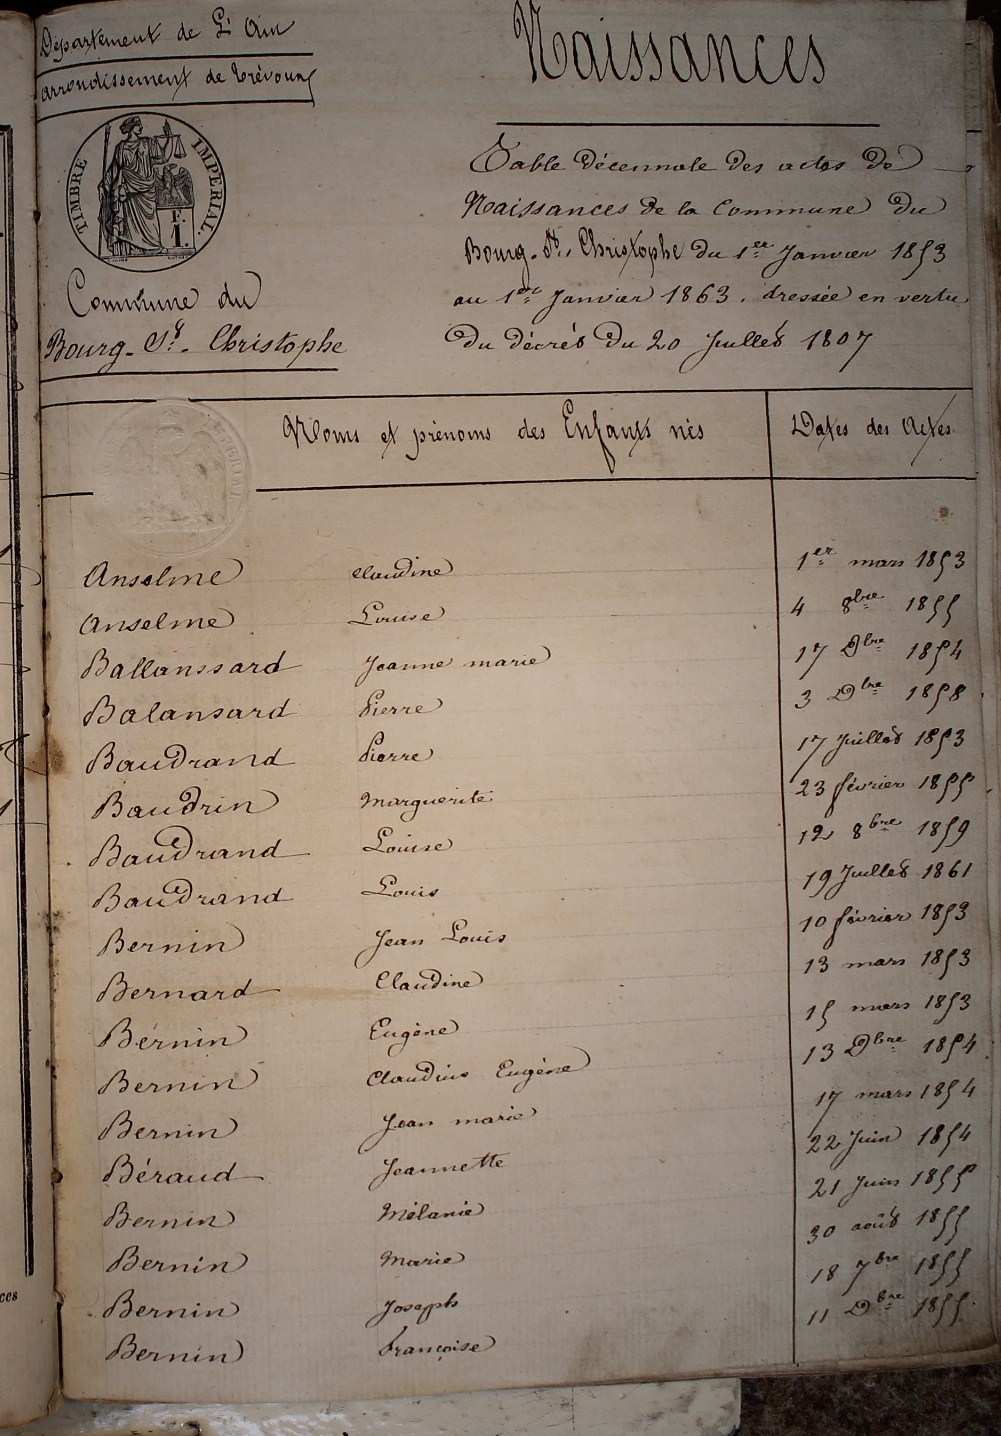 Département de L'Ain
arrondissement de trévoux
TIMBRE IMPERIAL.
F.
I.
Commune du
Bourg-St-Christophe
Naissances
Table décennale des actes de
Naissances de la Commune du
Bourg-St-Christophe du 1er Janvier 1853
au 1er Janvier 1863. dressée en vertu
du décrét du 20 Juillet 1807
Noms et prénoms des Enfants nés Dates des Actes
Anselme Claudine 1er mars 1853
Anselme Louise 4 8bre 1855
Ballanssard Jeanne marie 17 Dbre 1854
Balansard Pierre 3 Dbre 1858
Baudrand Pierre 17 Juillet 1853
Baudrin Marguerite 23 février 1855
Baudrand Louise 12 8bre 1859
Baudrand Louis 19 Juillet 1861
Bernin Jean Louis 10 février 1853
Bernard Claudine 13 mars 1853
Bernin Eugène 15 mars 1853
Bernin Claudius Eugène 13 Dbre 1854
Bernin Jean marie 17 mars 1854
Béraud Jeannette 22 Juin 1854
Bernin Mélanie 21 Juin 1855
Bernin Marie 30 août 1855
Bernin Joseph 18 7bre 1855
Bernin françoise 11 Dbre 1855